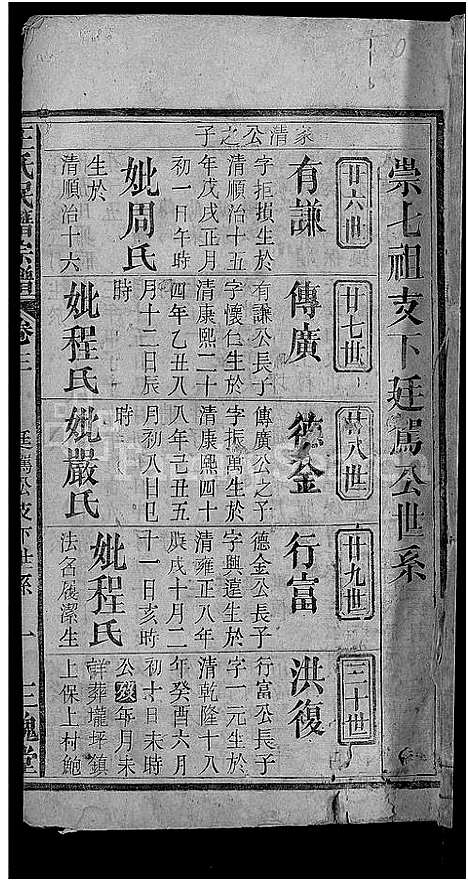 崇七祖支下廷駕公世系
廿六世
家清公之子
有謙
字拒損生於
清順治十五
年戊戌正月
初一日午時
妣周氏
生於
清順治十六
廿七世
傳廣
有謙公長子
字懷仁生於
清康熙二十
四年乙丑八
月十二日辰
時
妣程氏
廿八世
德金
傳廣公之子
字振萬生於
清康熙四十
八年己丑五
月初八日巳
時
妣嚴氏
廿九世
行富
德金公長子
字興遠生於
清雍正八年
庚戌十月二
十一日亥時
妣程氏
法名履潔生
三十世
洪復
行富公長子
字一元生於
清乾隆十八
年癸酉六月
初十日未時
公歿年月未
詳葬壠坪鎮
上保上村鮑
氏宗譜
卷三
廷駕公支下世系
一
三槐堂